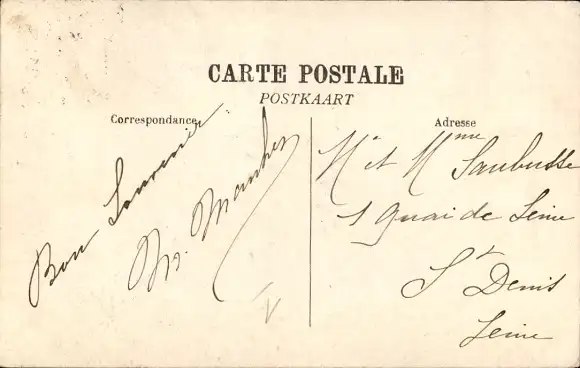 CARTE POSTALE
POSTKAART
Correspondance
Bon Souvenir
Adresse
Mr et Mme Saubusse
1 Quai de Seine
St Denis
Seine